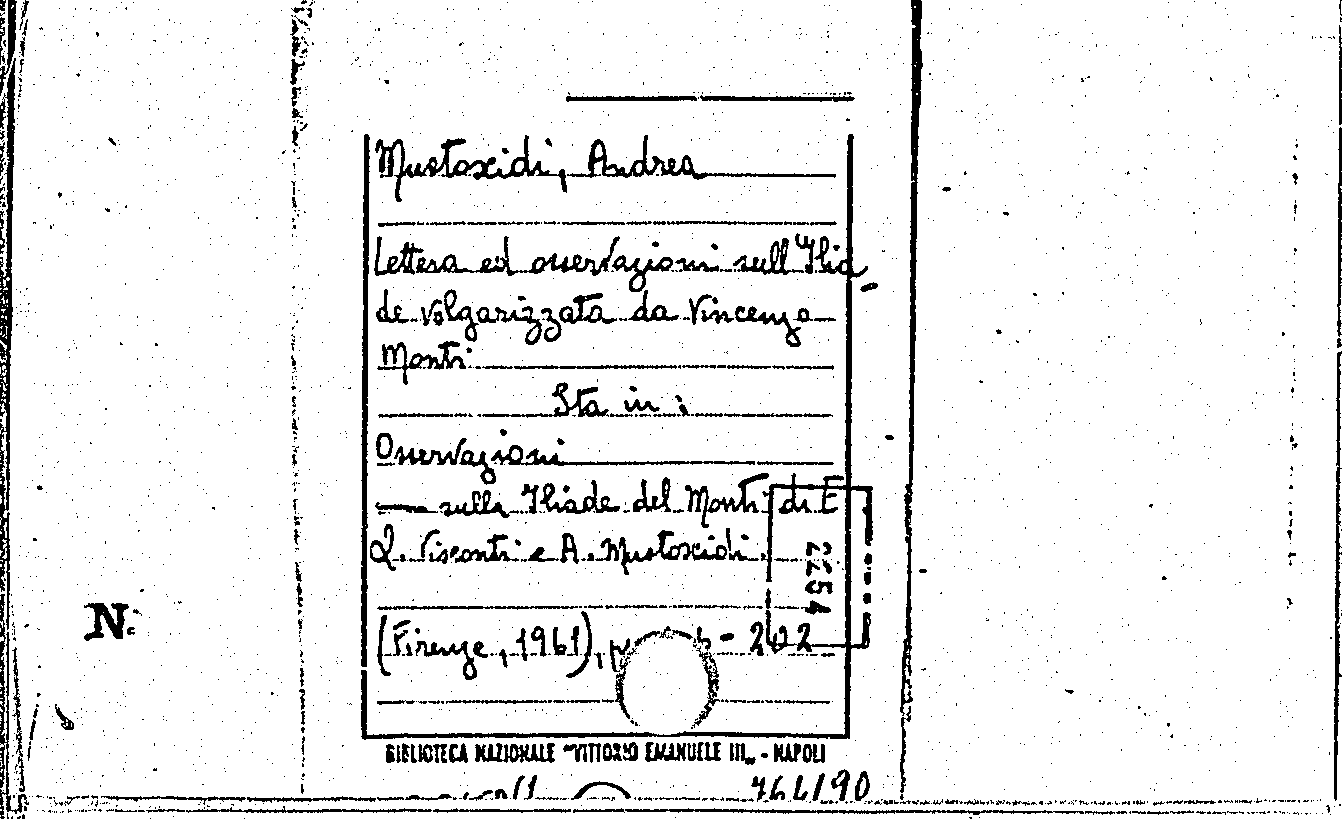 Mustoxidi, Andrea
Lettera ed osservazioni sull'Ilia-
de volgarizzata da Vincenzo
Monti
Sta in:
Osservazioni
— sulla Iliade del Monti di E
Q. Visconti e A. Mustoxidi.
2254
(Firenze, 1961), - 202
N.
BIBLIOTECA NAZIONALE "VITTORIO EMANUELE III„ - NAPOLI